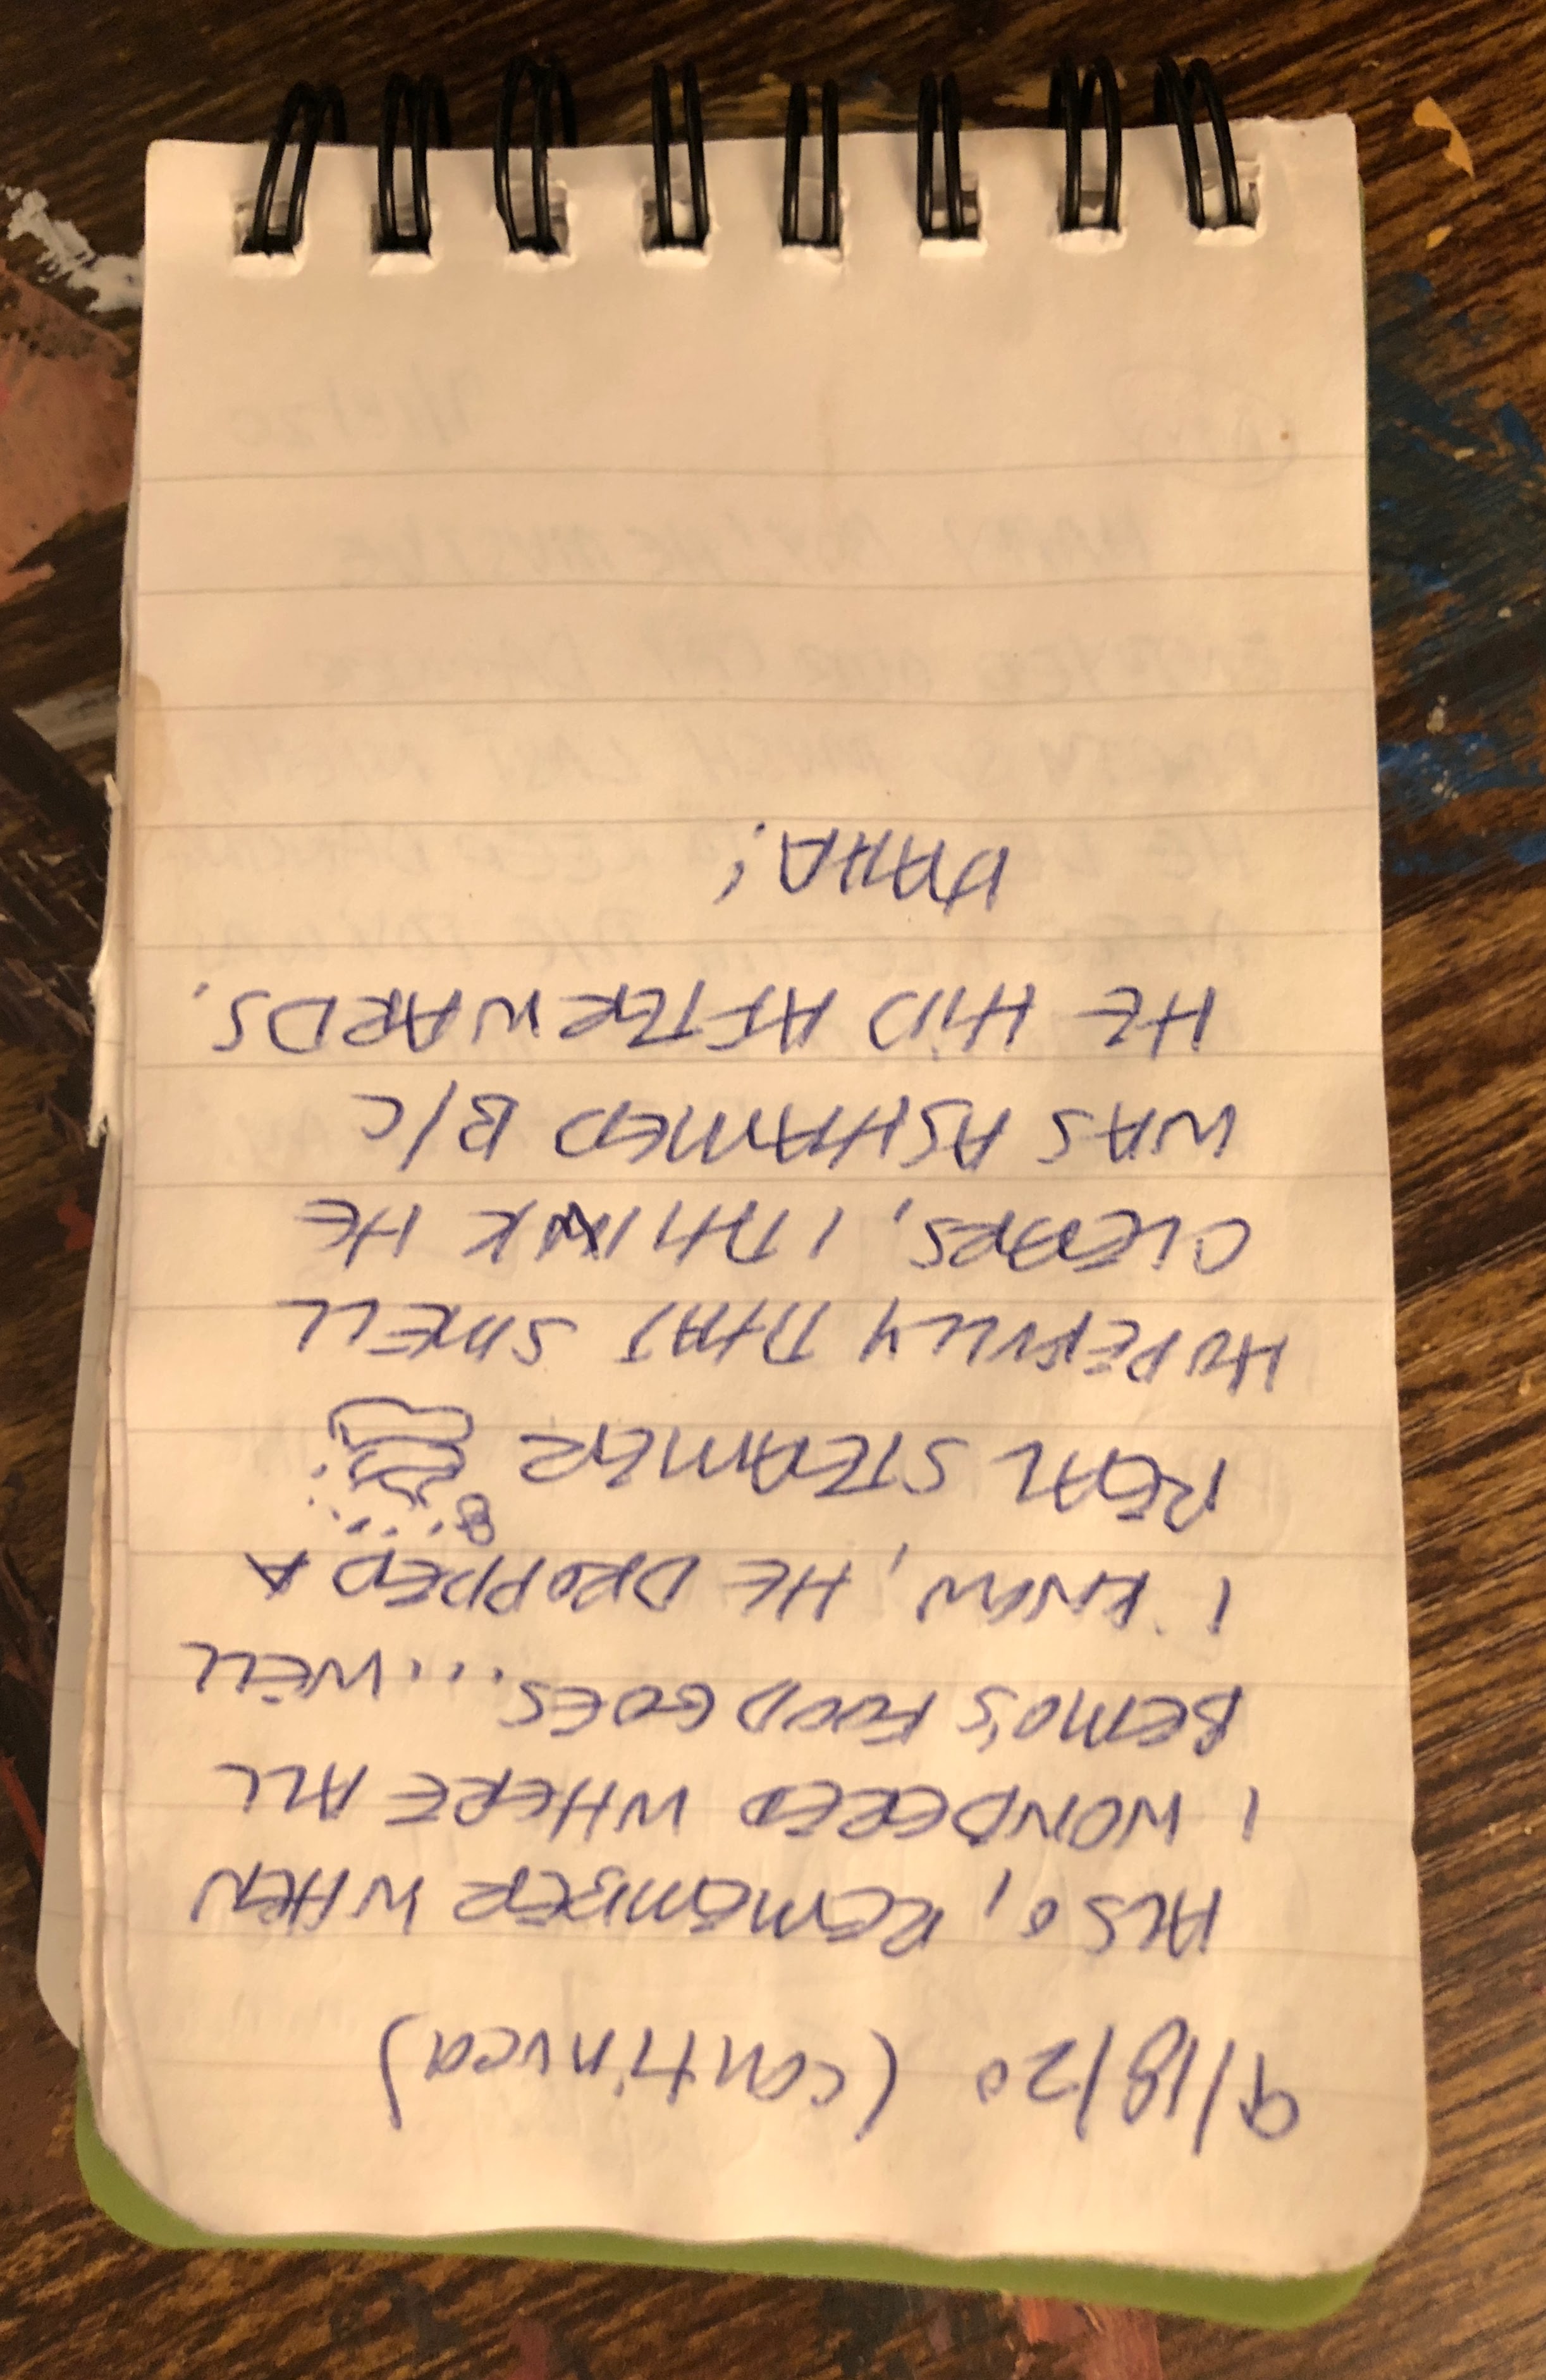 9/18/20 (continued)
ALSO, REMEMBER WHEN
I WONDERED WHERE ALL
BEMO'S FOOD GOES....WELL
I KNOW, HE DROPPED A
REAL STEAMER
HOPEFULLY THAT SMELL
CLEARS, I THINK HE
WAS ASHAMED B/C
HE HID AFTERWARDS.